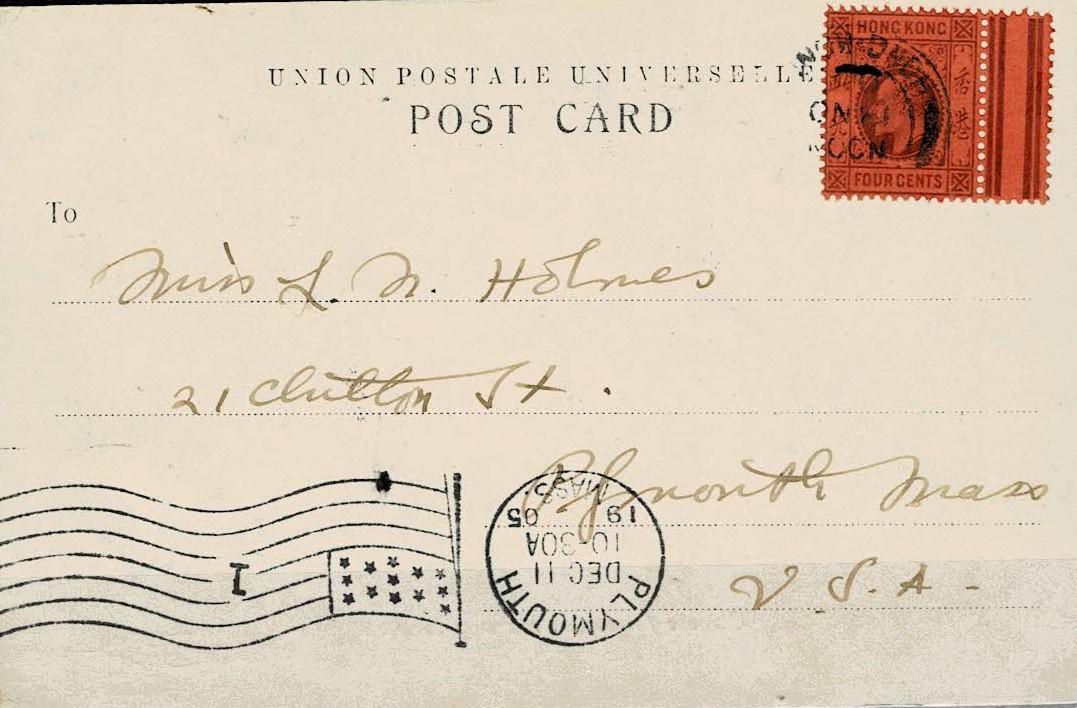 HONG KONG
香港
FOUR CENTS
UNION POSTALE UNIVERSELLE
POST CARD
To
Miss L. N. Holmes
21 Chilton St.
Plymouth Mass
U. S. A -
PLYMOUTH
DEC 11
10-30A
19 05
MASS.
1